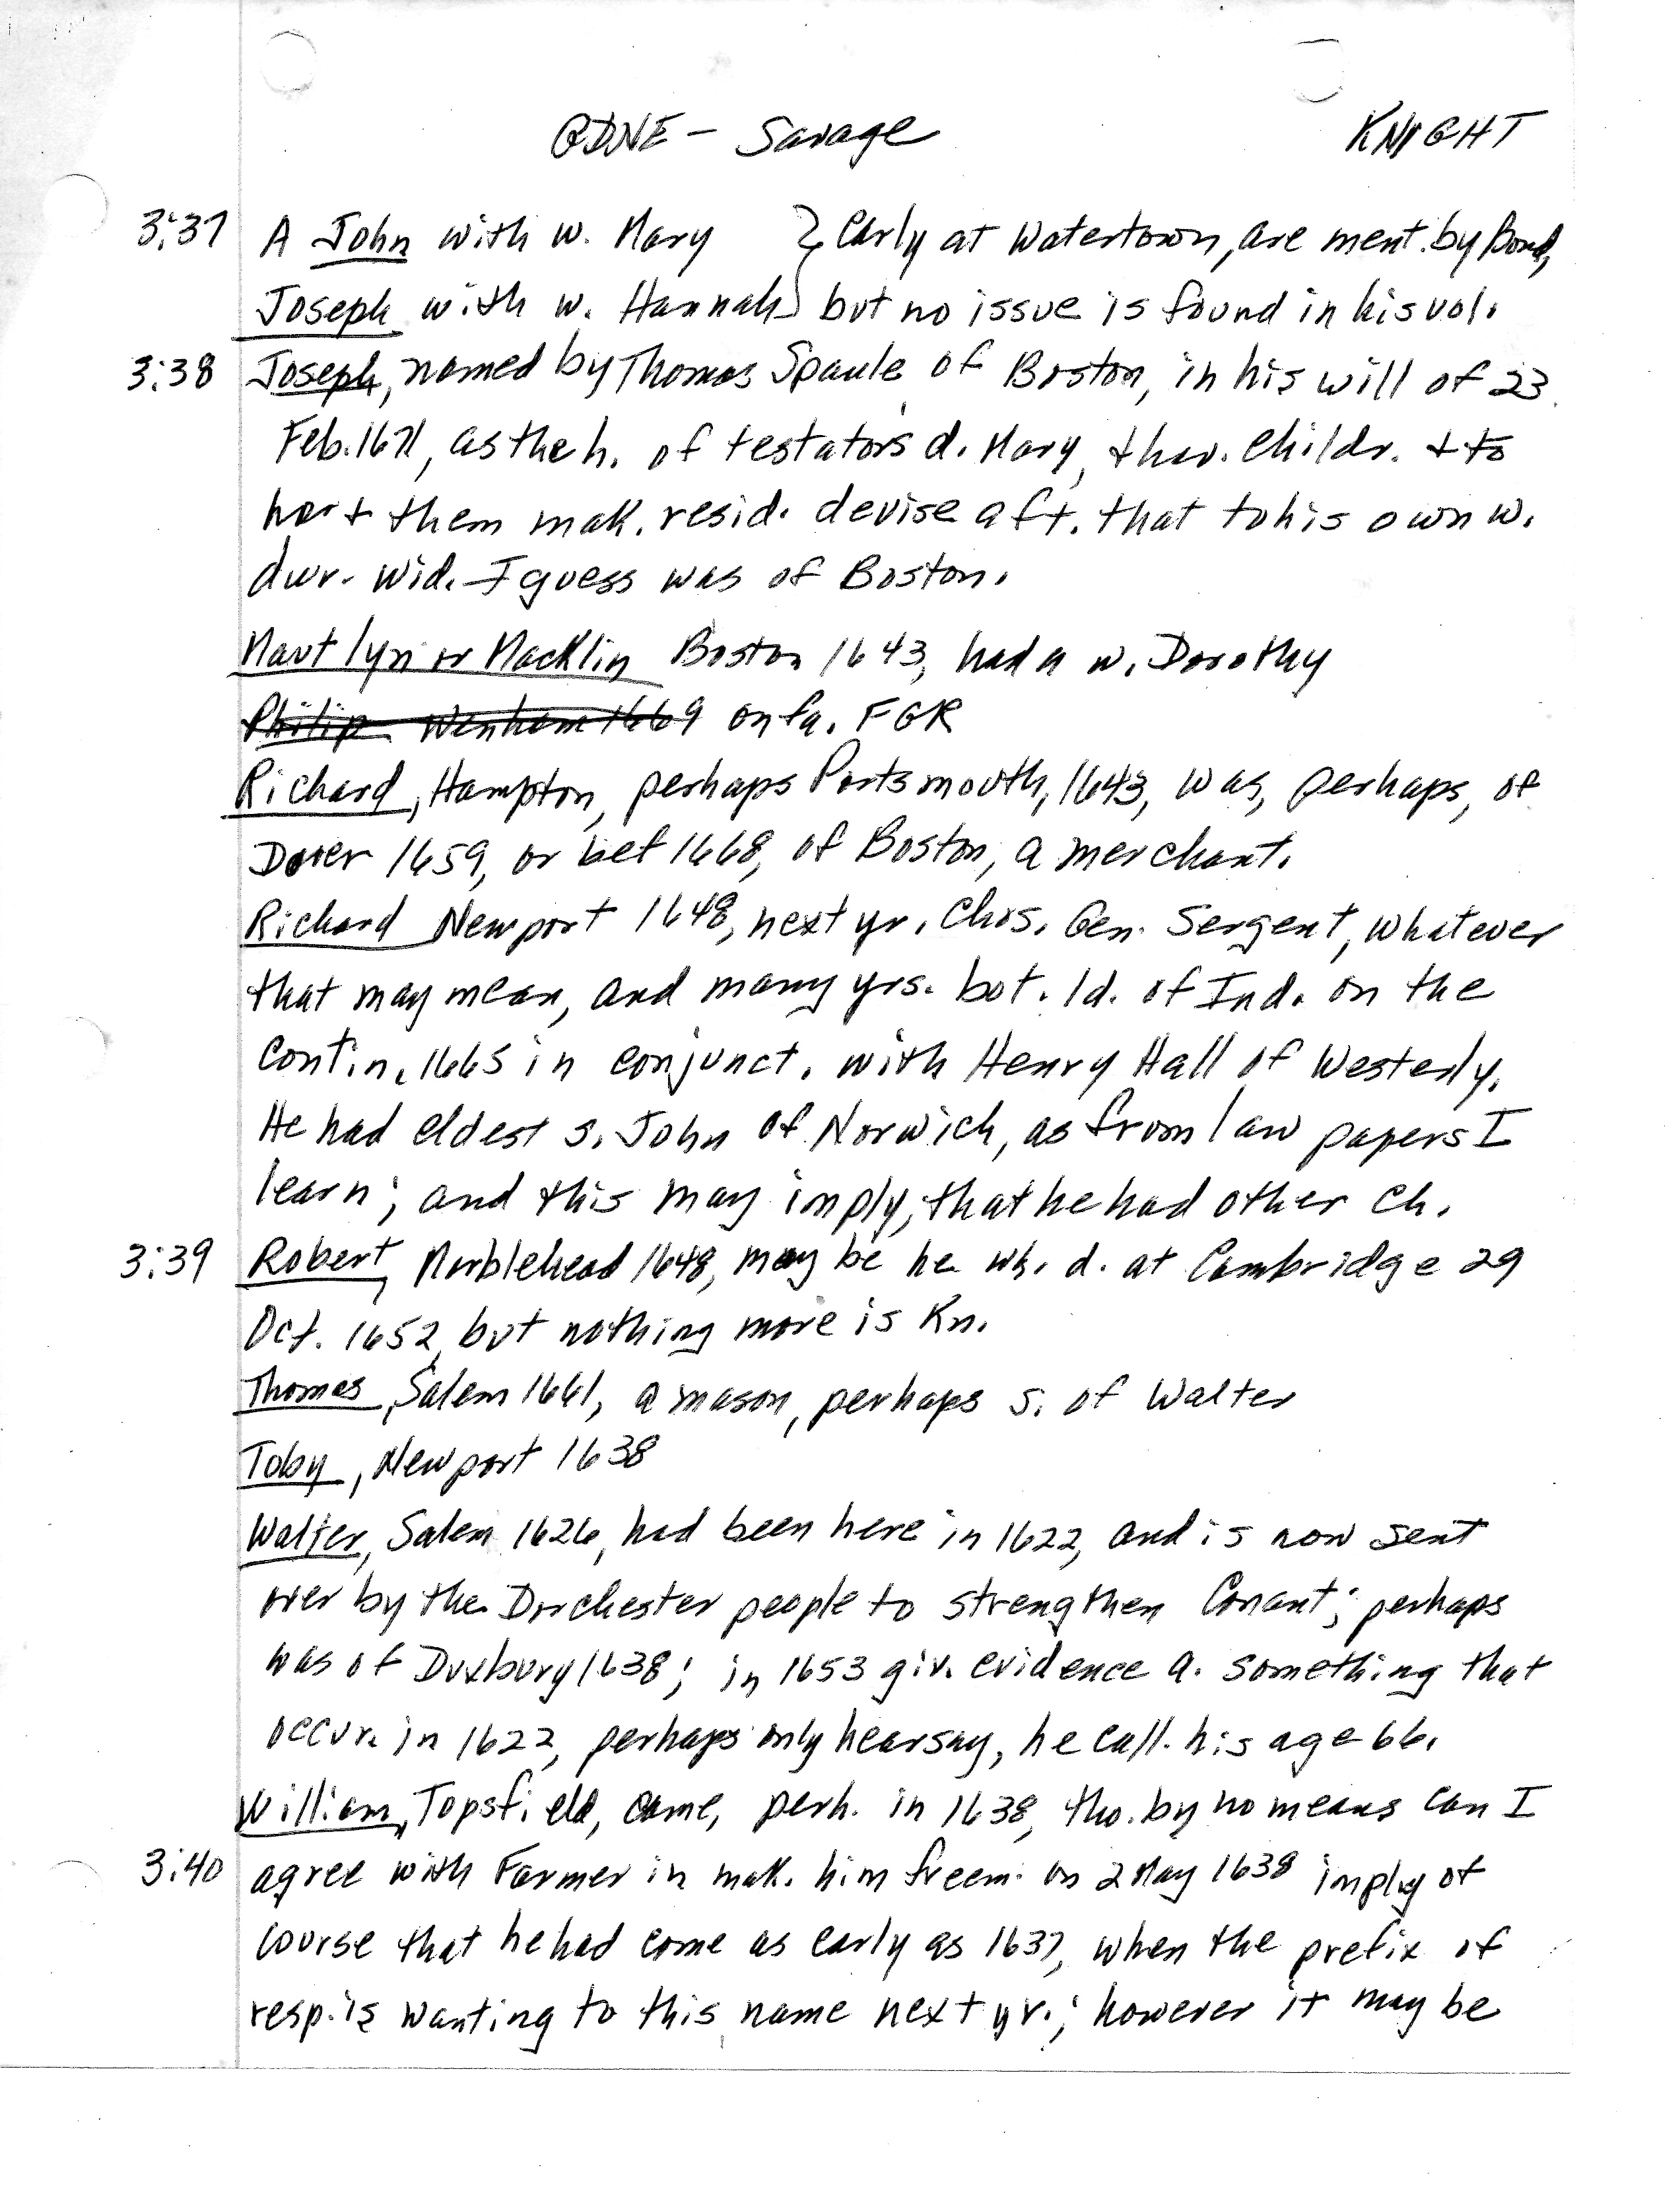 GDNE - Savage KNIGHT
3:37 A John with w. Mary } Early at Watertown, are ment. by Bond,
Joseph with w. Hannah } but no issue is found in his vol.
3:38 Joseph, named by Thomas Spaule of Boston, in his will of 23
Feb. 1671, as the h. of testator's d. Mary, & hav. childr. & to
them mak. resid. devise aft. that to his own w.
dur. wid. I guess was of Boston.
or Macklin Boston 1643, had a w. Dorothy
Philip Wenham 1669 on fa. FGR
Richard, Hampton, perhaps Portsmouth, 1643, was, perhaps, of
Dover 1659, or bef 1668, of Boston, a merchant.
Richard Newport 1648, next yr. Chos. Gen. Sergent, whatever
that may mean, and many yrs. bot. ld. of Ind. on the
contin. 1665 in conjunct. with Henry Hall of Westerly.
He had eldest s. John of Norwich, as from law papers I
learn; and this may imply, that he had other ch.
3:39 Robert, Marblehead 1648, may be he wh. d. at Cambridge 29
Oct. 1652, but nothing more is kn.
Thomas, Salem 1661, a mason, perhaps s. of Walter
Toby, Newport 1638
Walter, Salem 1626, had been here in 1622, and is now sent
over by the Dorchester people to strengthen Conant; perhaps
was of Duxbury 1638; in 1653 giv. evidence a. something that
occur. in 1622, perhaps only hearsay, he call. his age 66.
William, Topsfield, came, perh. in 1638, tho. by no means can I
3:40 agree with Farmer in mak. him freem. on 2 May 1638 imply of
course that he had come as early as 1637, when the prefix of
resp. is wanting to this name next yr.; however it may be